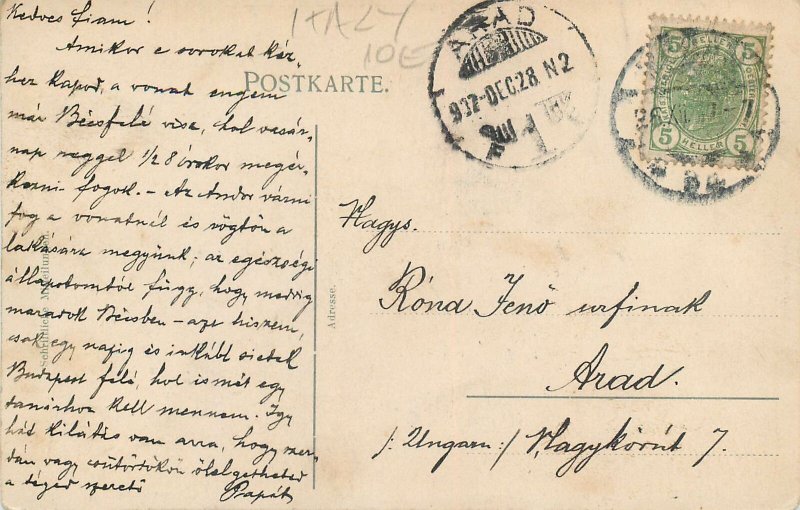 Kedves fiam!
Amikor e sorokat kéz-
hez kapod, a vonat engem
már Bécsfelé visz, hol vasár-
nap reggel 1/2 8 órakor megér-
kezni fogok. - Az Andor várni
fog a vonatnál és rögtön a
lakására megyünk; az egészségi
állapotomtól függ, hogy meddig
maradok Bécsben - azt hiszem,
csak egy napig és inkább sietek
Budapest felé, hol ismét egy
tanárhoz kell mennem. Így
hát kilátás van arra, hogy szer-
dán vagy csütörtökön ölelgetheted
a téged szerető Papát
ITALY
10E
POSTKARTE.
ARAD
DEC. 28 N2
5 HELLER 5
5 HELLER 5
Adresse.
Nagys.
Róna Jenő urfinak
Arad.
/: Ungarn :/ Nagykörút 7.